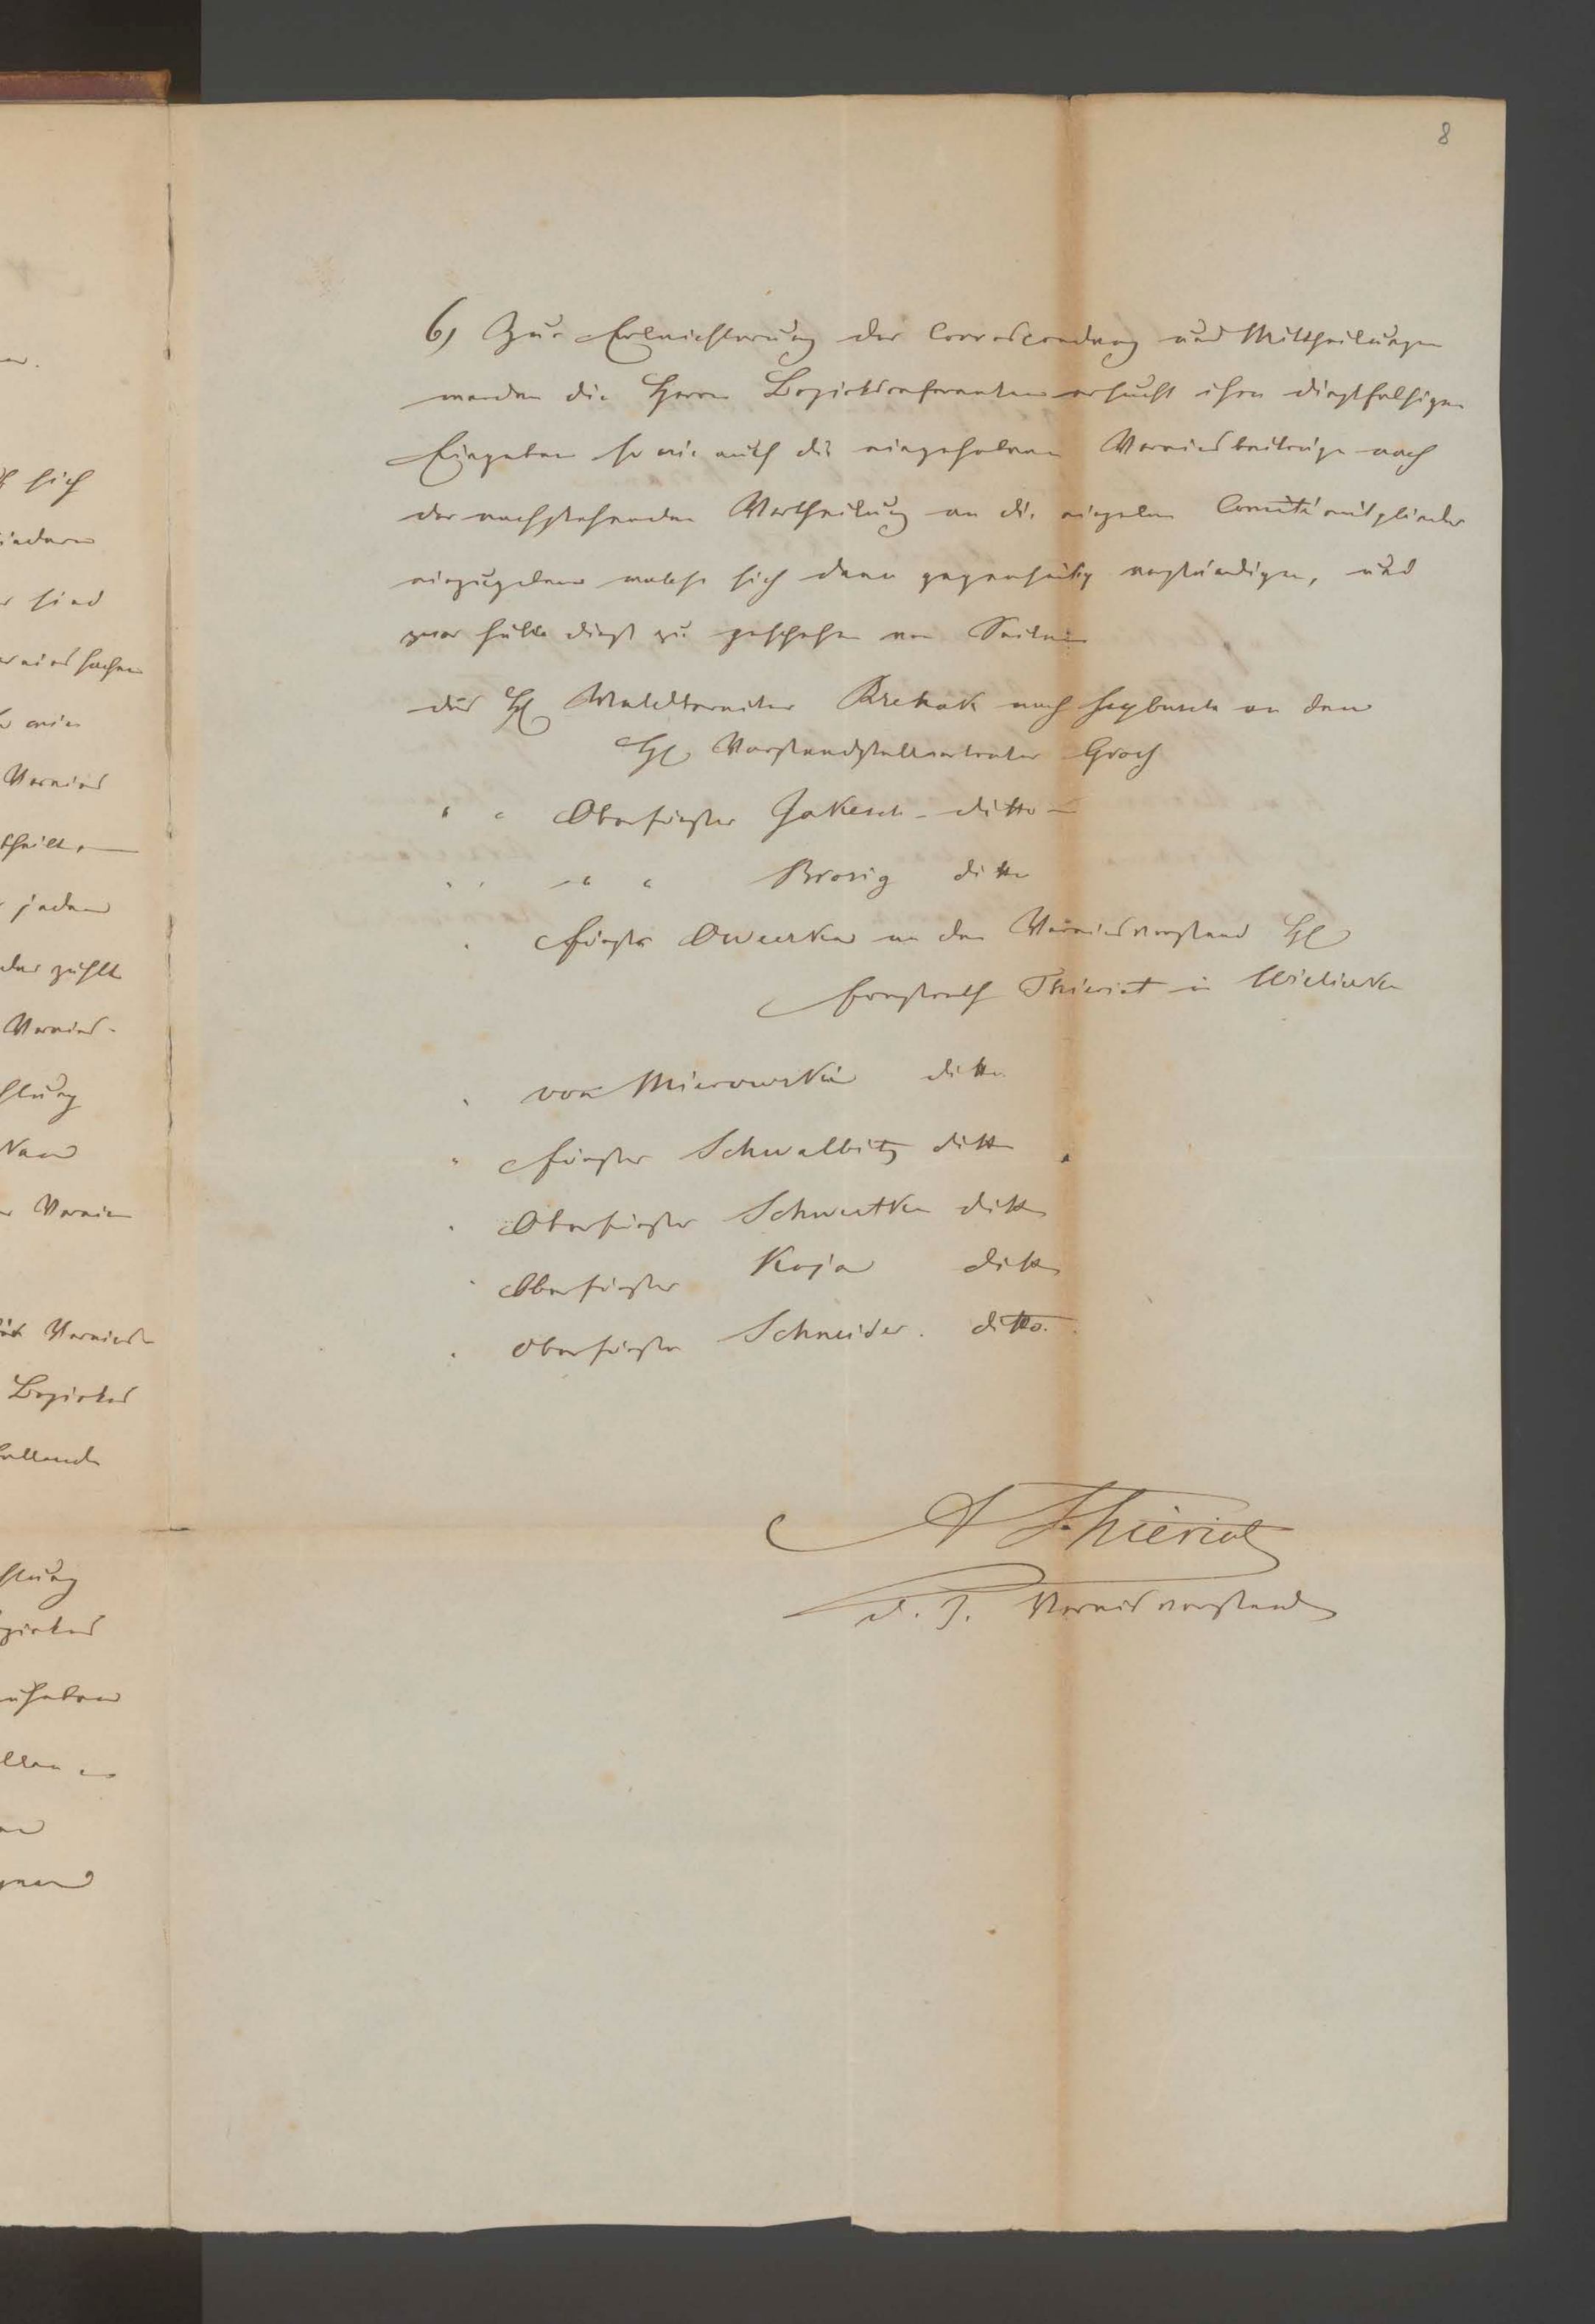 8
6) Zur Erleichterung der Correspondenz und Mittheilungen
werden die Herrn Bezirksreferenten ersucht ihre dießfälligen
Eingaben so wie auch die eingehobenen Vereinsbeiträge nach
der nachstehenden Vertheilung an die einzelnen Comitémitglieder
einzugeben welche sich dann gegenseitig verständigen, und
zwar hätte dieß zu geschehen von Seiten
des H Waldbereiter Rzehak nach Saybusch an den
H Vorstandstellvertreter Groch
" " Oberförster Jakesch - ditto -
" " " " Brosig ditto
" Förster Owierka an den Vereinsvorstand H
Forstrath Thieriot in Wieliczka
" von Mierowski ditto
" Förster Schwalbitz ditto
" Oberförster Schwestka ditto
" Oberförster Koja ditto
" Oberförster Schneider. ditto.
A Thieriot
d. Z. Vereinsvorstand
sich
sind
Verein
theilt,
jeden
zählt
Vereins-
Verein
Vereins
Bezirkes